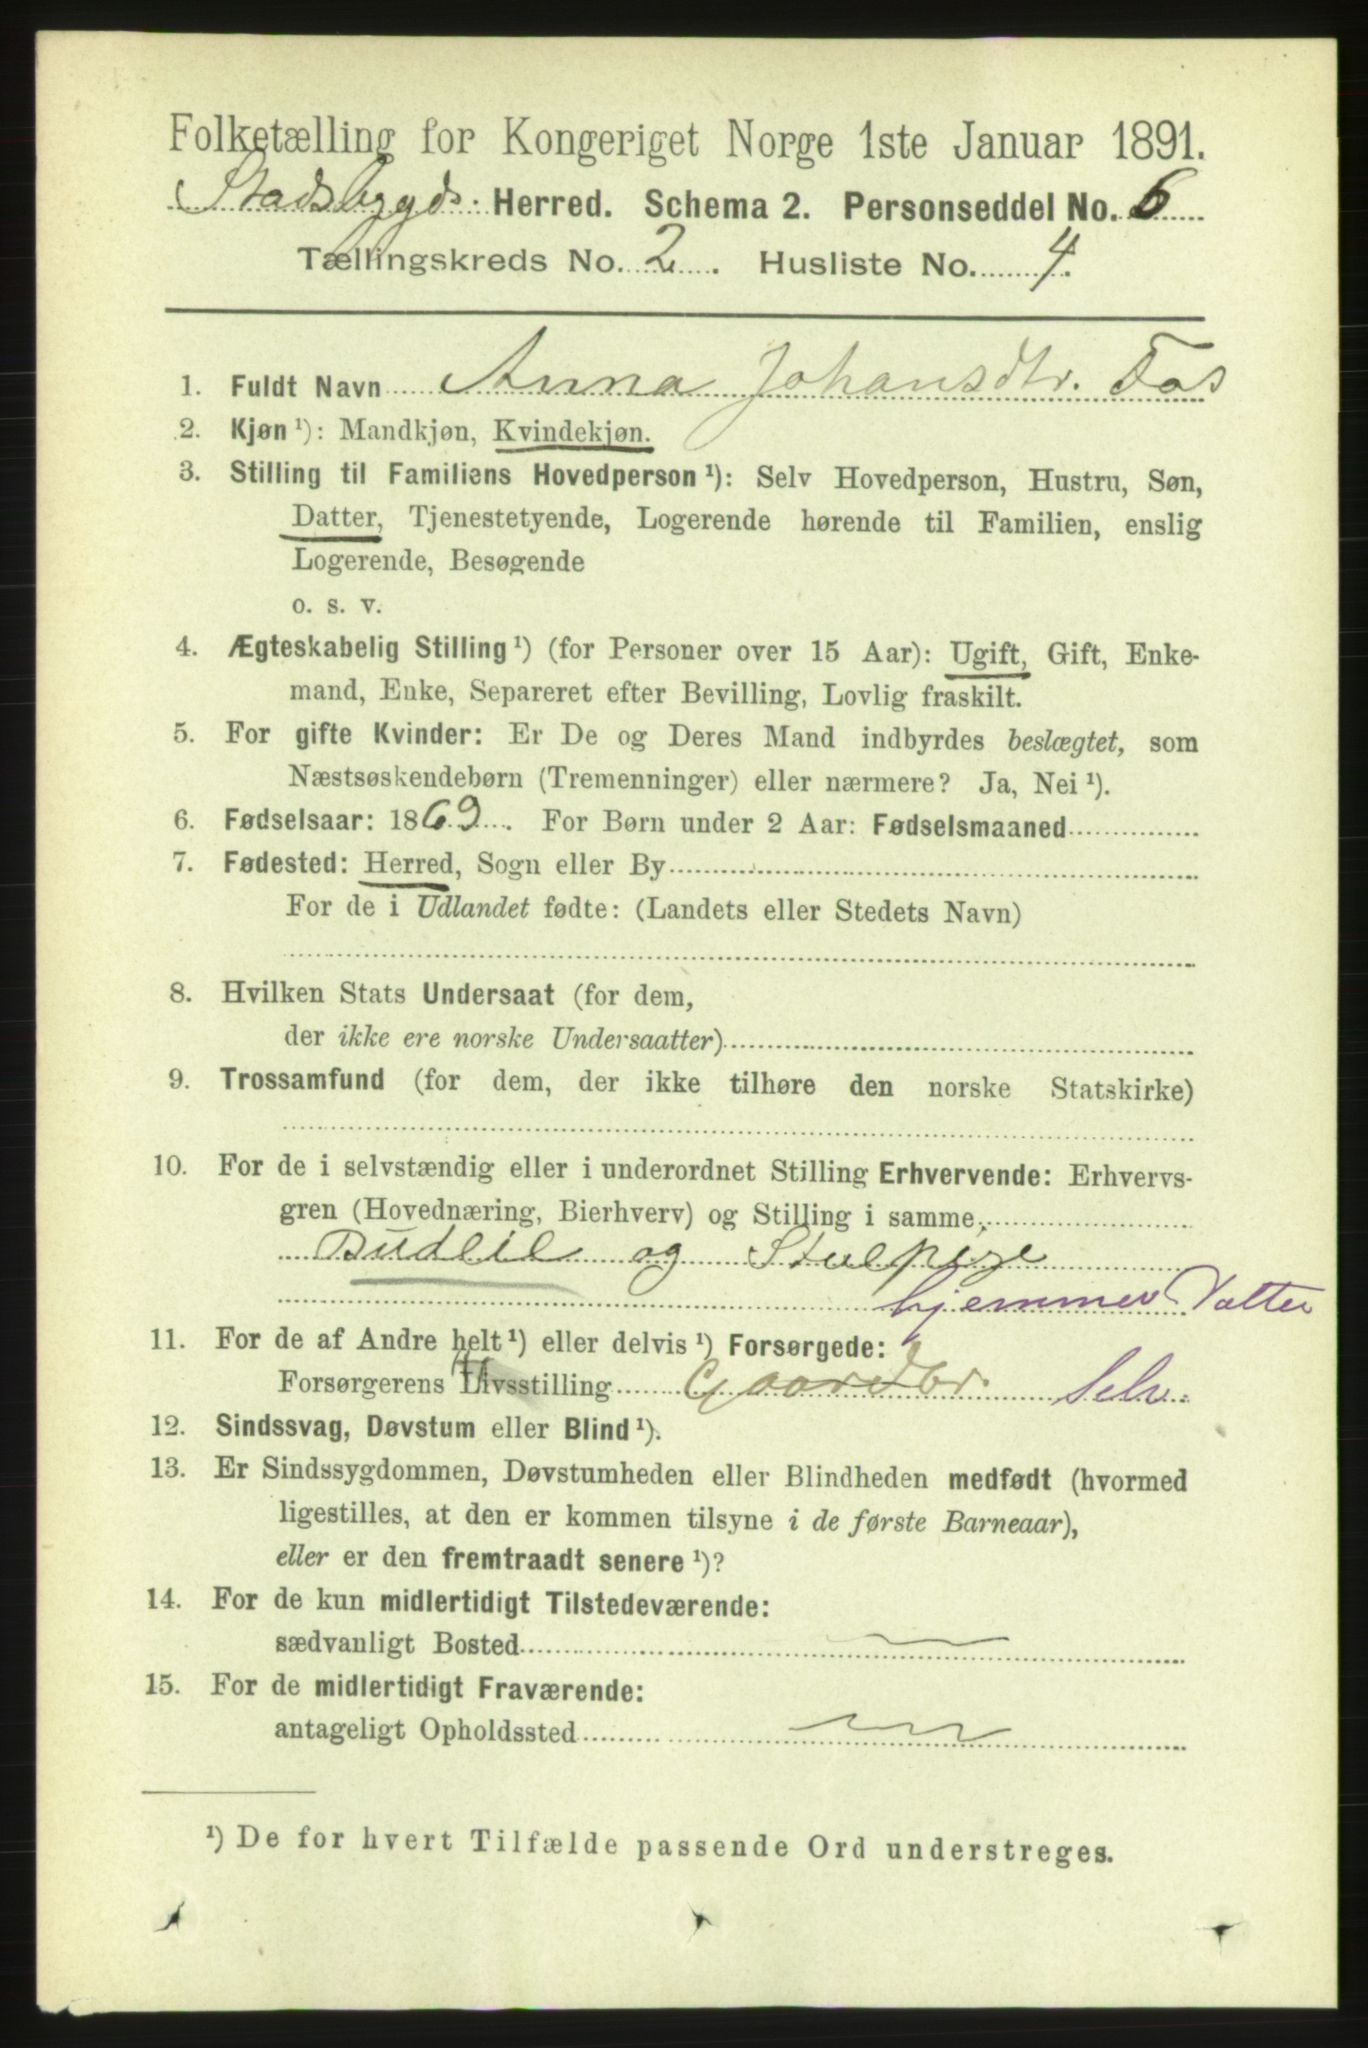 Folketælling for Kongeriget Norge 1ste Januar 1891.
Stadsbygds Herred. Schema 2. Personseddel No. 6
Tællingskreds No. 2. Husliste No. 4.
1. Fuldt Navn Anna Johansdtr. Fos
2. Kjøn ¹): Mandkjøn, Kvindekjøn.
3. Stilling til Familiens Hovedperson ¹): Selv Hovedperson, Hustru, Søn,
Datter, Tjenestetyende, Logerende hørende til Familien, enslig
Logerende, Besøgende
o. s. v.
4. Ægteskabelig Stilling ¹) (for Personer over 15 Aar): Ugift, Gift, Enke-
mand, Enke, Separeret efter Bevilling, Lovlig fraskilt.
5. For gifte Kvinder: Er De og Deres Mand indbyrdes beslægtet, som
Næstsøskendebørn (Tremenninger) eller nærmere? Ja, Nei ¹).
6. Fødselsaar: 1869. For Børn under 2 Aar: Fødselsmaaned
7. Fødested: Herred, Sogn eller By
For de i Udlandet fødte: (Landets eller Stedets Navn)
8. Hvilken Stats Undersaat (for dem,
der ikke ere norske Undersaatter)
9. Trossamfund (for dem, der ikke tilhøre den norske Statskirke)
10. For de i selvstændig eller i underordnet Stilling Erhvervende: Erhvervs-
gren (Hovednæring, Bierhverv) og Stilling i samme.
Budeie og Stuepige
hjemmev Datter
11. For de af Andre helt ¹) eller delvis ¹) Forsørgede:
Forsørgerens Livsstilling Gaardbr. Selv.
12. Sindssvag, Døvstum eller Blind ¹).
13. Er Sindssygdommen, Døvstumheden eller Blindheden medfødt (hvormed
ligestilles, at den er kommen tilsyne i de første Barneaar),
eller er den fremtraadt senere ¹)?
14. For de kun midlertidigt Tilstedeværende:
sædvanligt Bosted
15. For de midlertidigt Fraværende:
antageligt Opholdssted
¹) De for hvert Tilfælde passende Ord understreges.